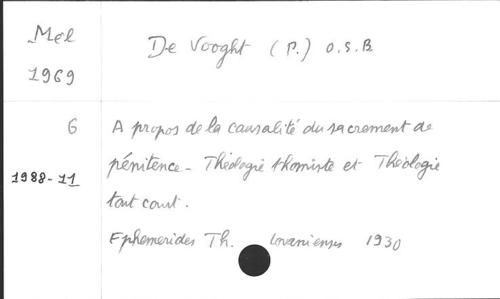 Mel
1969
De Vooght (P.) O.S.B.
6
A propos de la causalité du sacrement de
pénitence - Théologie thomiste et Théologie
1988-11
tout court.
Ephemerides Th. Lovanienses 1930